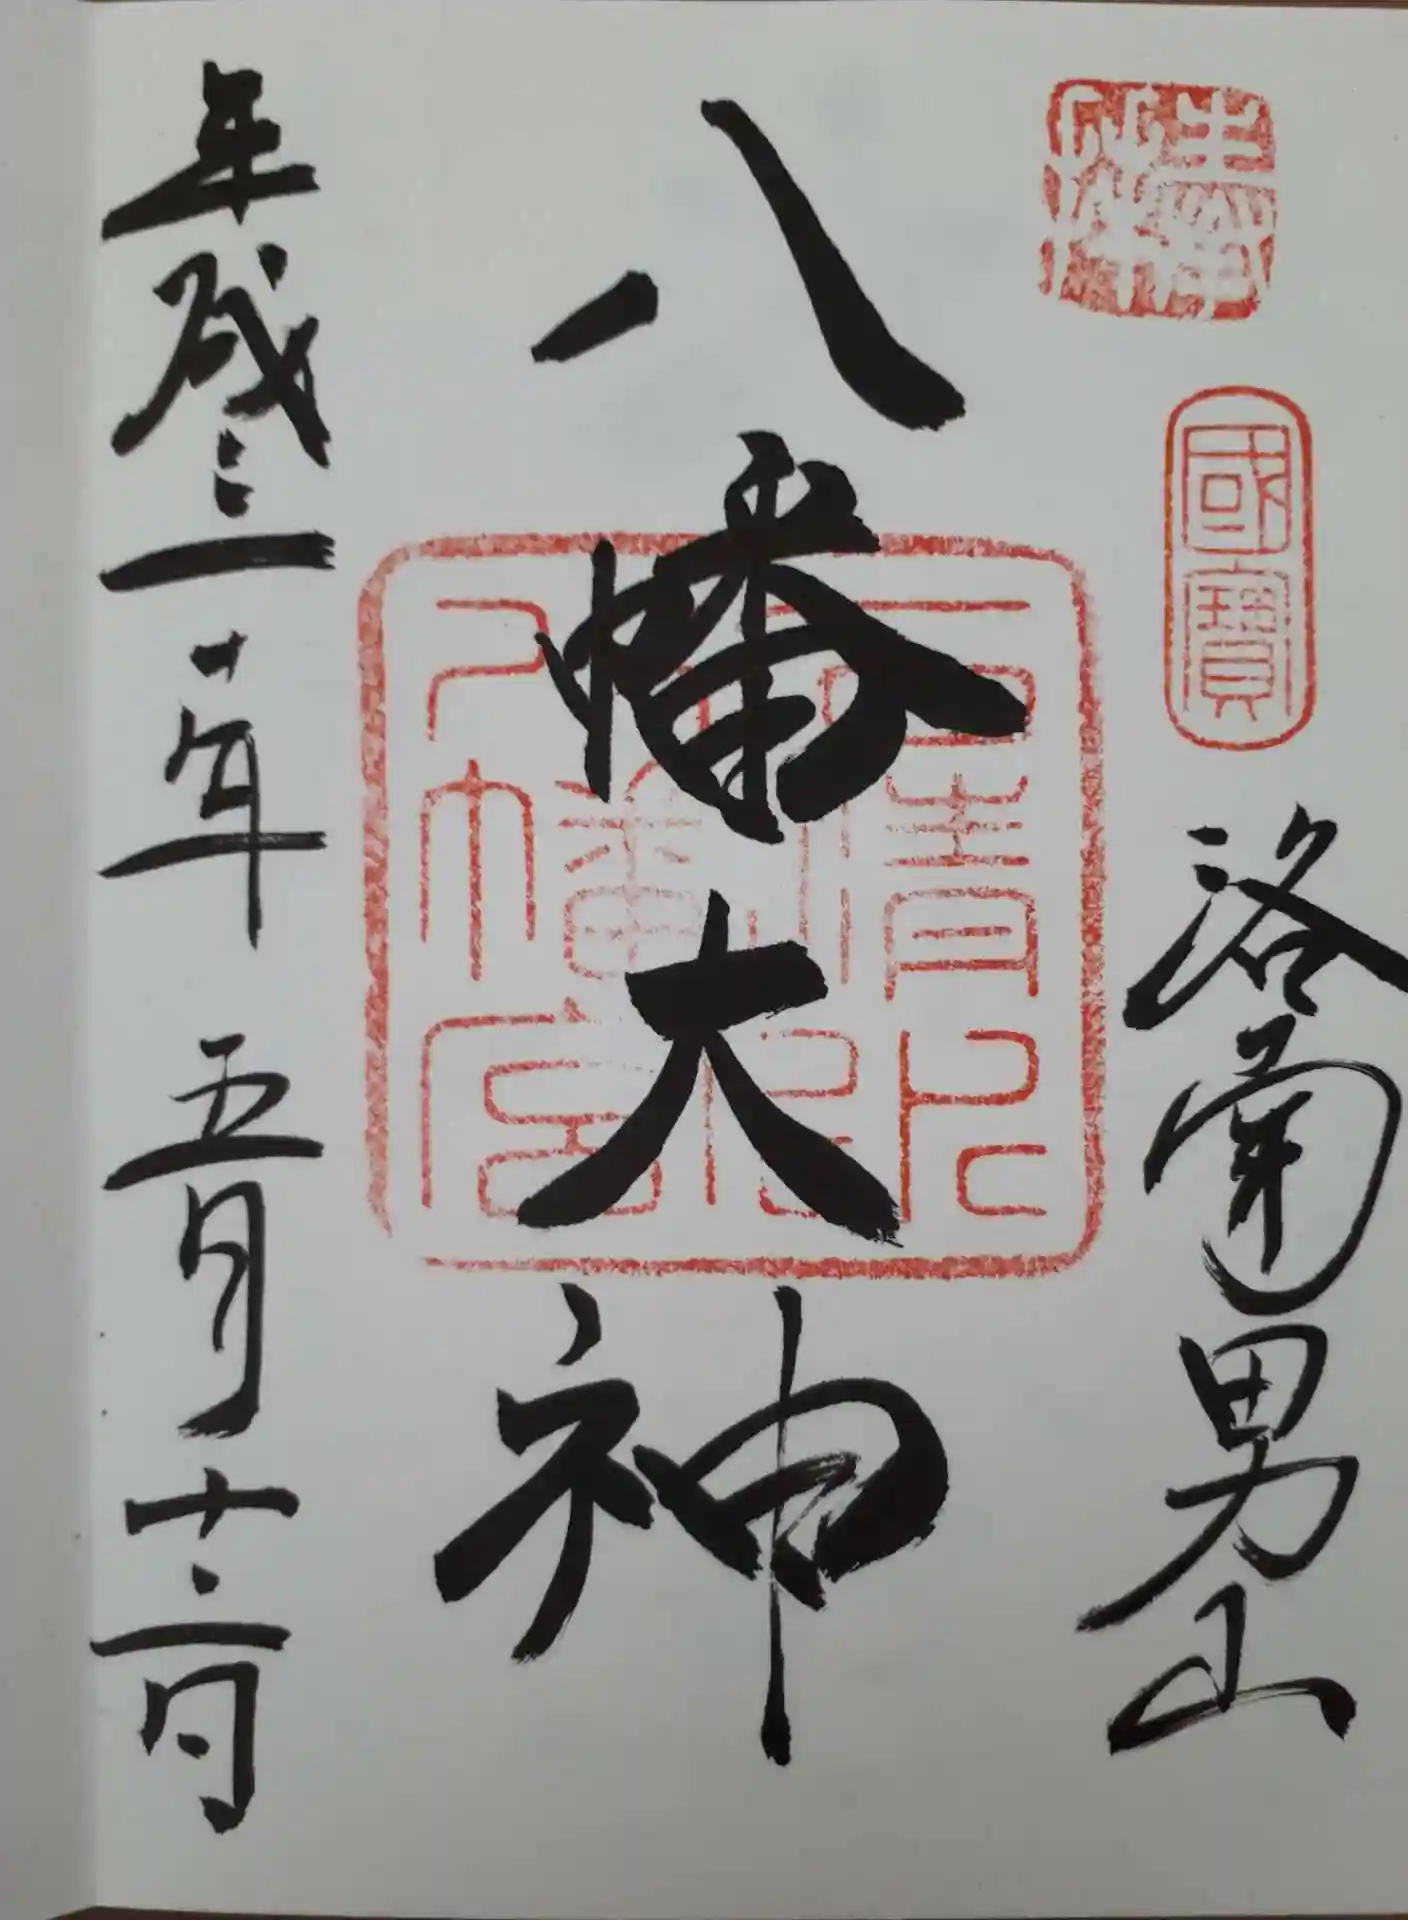 奉拝
國寶
洛南男山
八幡大神
石清水
八幡宮
平成三十年五月十二日